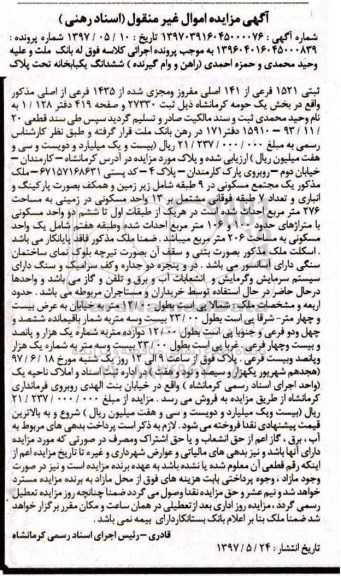 آگهی مزایده اموال غیر منقول (اسناد رهنی)
شماره آگهی : ۱۳۹۷۰۳۹۱۶۰۴۵۰۰۰۰۷۶ تاریخ : ۱۰ / ۰۵ / ۱۳۹۷ شماره پرونده :
۱۳۹۶۰۴۰۱۶۰۴۵۰۰۰۸۳۹ به موجب پرونده اجرائی کلاسه فوق له بانک ملت و علیه
وحید محمدی و حمزه احمدی (راهن و وام گیرنده) ششدانگ یکبابخانه تحت پلاک
ثبتی ۱۵۲۱ فرعی از ۱۴۱ اصلی مفروز ومجزی شده از ۱۴۳۵ فرعی از اصلی مذکور
واقع در بخش یک حومه کرمانشاه ذیل ثبت ۲۷۳۳۰ و صفحه ۴۱۹ دفتر ۱۲۸ / ۱ به
نام وحید محمدی ثبت و سند مالکیت صادر و تسلیم گردید سپس طی سند قطعی ۲۰
/ ۱۱ / ۹۳ – ۱۵۹۱۰ دفتر ۱۷۱ در رهن بانک ملت قرار گرفته و طبق نظر کارشناس
رسمی به مبلغ ۲۱/۲۳۷/۰۰۰/۰۰۰ ریال (بیست و یک میلیارد و دویست و سی و
هفت میلیون ریال) ارزیابی شده و پلاک مورد مزایده در آدرس کرمانشاه – کارمندان –
خیابان دوم – روبروی پارک کارمندان – پلاک ۴ – کد پستی ۶۷۱۵۷۱۶۸۶۳۱ – ملک
مذکور یک مجتمع مسکونی در ۹ طبقه شامل زیر زمین و همکف بصورت پارکینگ و
انباری و تعداد ۷ طبقه فوقانی مشتمل بر ۱۳ واحد مسکونی در زمینی به مساحت
۲۷۶ متر مربع احداث شده است در هریک از طبقات اول تا ششم دو واحد مسکونی
با متراژهای حدود ۱۰۰ و ۱۰۶ متر مربع احداث شده وطبقه هفتم شامل یک واحد
مسکونی به مساحت ۲۰۶ متر مربع میباشد . ضمنا ملک مذکور فاقد پایانکار می باشد
. اسکلت ملک مذکور بصورت بتنی و سقف آن بصورت تیرچه بلوک نمای ساختمان
سنگی دارای آسانسور می باشد . در و پنجره دو جداره وکف سرامیک و سنگ دارای
سیستم سرمایش وگرمایش و انشعابات آب و برق و تلفن و گاز می باشد و واحدها
درحال حاضر در حال استفاده توسط خریداران و مستاجران مربوطه می باشد . حدود
اربعه و مشخصات ملک : شمالا پی است بطول ۱۲/۰۰ متر به خیابان به عرض بیست
و چهار متر– شرقا پی است بطول ۲۳/۰۰ بیست وسه متربه شمار باقیمانده ششصد و
چهل ودو فرعی و جنوبا پی است بطول ۱۲/۰۰ دوازده متربه شماره یک هزار و پانصد
و بیست وچهار فرعی . غربا پی است بطول ۲۳/۰۰ بیست وسه متر به شماره یک هزار
وپانصد وبیست فرعی . پلاک فوق از ساعت ۹ الی ۱۲ روز یک شنبه مورخ ۱۸ / ۶ / ۹۷
(هجدهم شهریور یکهزار و سیصد و نود و هفت) در اداره ثبت اسناد و املاک ناحیه یک
(واحد اجرای اسناد رسمی کرمانشاه) واقع در خیابان بنت الهدی روبروی فرمانداری
کرمانشاه از طریق مزایده به فروش می رسد . مزایده از مبلغ ۲۱/۲۳۷/۰۰۰/۰۰۰
ریال (بیست ویک میلیارد و دویست و سی و هفت میلیون ریال) شروع و به بالاترین
قیمت پیشنهادی نقدا فروخته می شود . لازم به ذکر است پرداخت بدهی های مربوط به
آب ، برق ، گاز اعم از حق انشعاب و یا حق اشتراک ومصرف در صورتی که مورد مزایده
دارای آنها باشد و نیز بدهی های مالیاتی و عوارض شهرداری و غیره تا تاریخ مزایده اعم از
اینکه رقم قطعی آن معلوم شده یا نشده باشد به عهده برنده مزایده است و نیز در صورت
وجود مازاد ، وجوه پرداختی بابت هزینه های فوق از محل مازاد به برنده مزایده مسترد
خواهد شد و نیم عشر و حق مزایده نقدا وصول می گردد ضمنا چنانچه روز مزایده تعطیل
رسمی گردد ، مزایده روز اداری بعد ازتعطیلی در همان ساعت و مکان مقرر برگزار خواهد
شد ضمنا ملک بنا بر اعلام بانک بستانکاردارای بیمه نمی باشد .
قادری – رئیس اجرای اسناد رسمی کرمانشاه
تاریخ انتشار : ۲۴ / ۵ / ۱۳۹۷